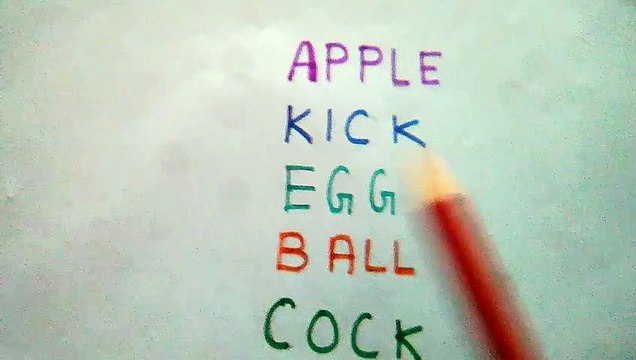 APPLE
KICK
EGG
BALL
COCK